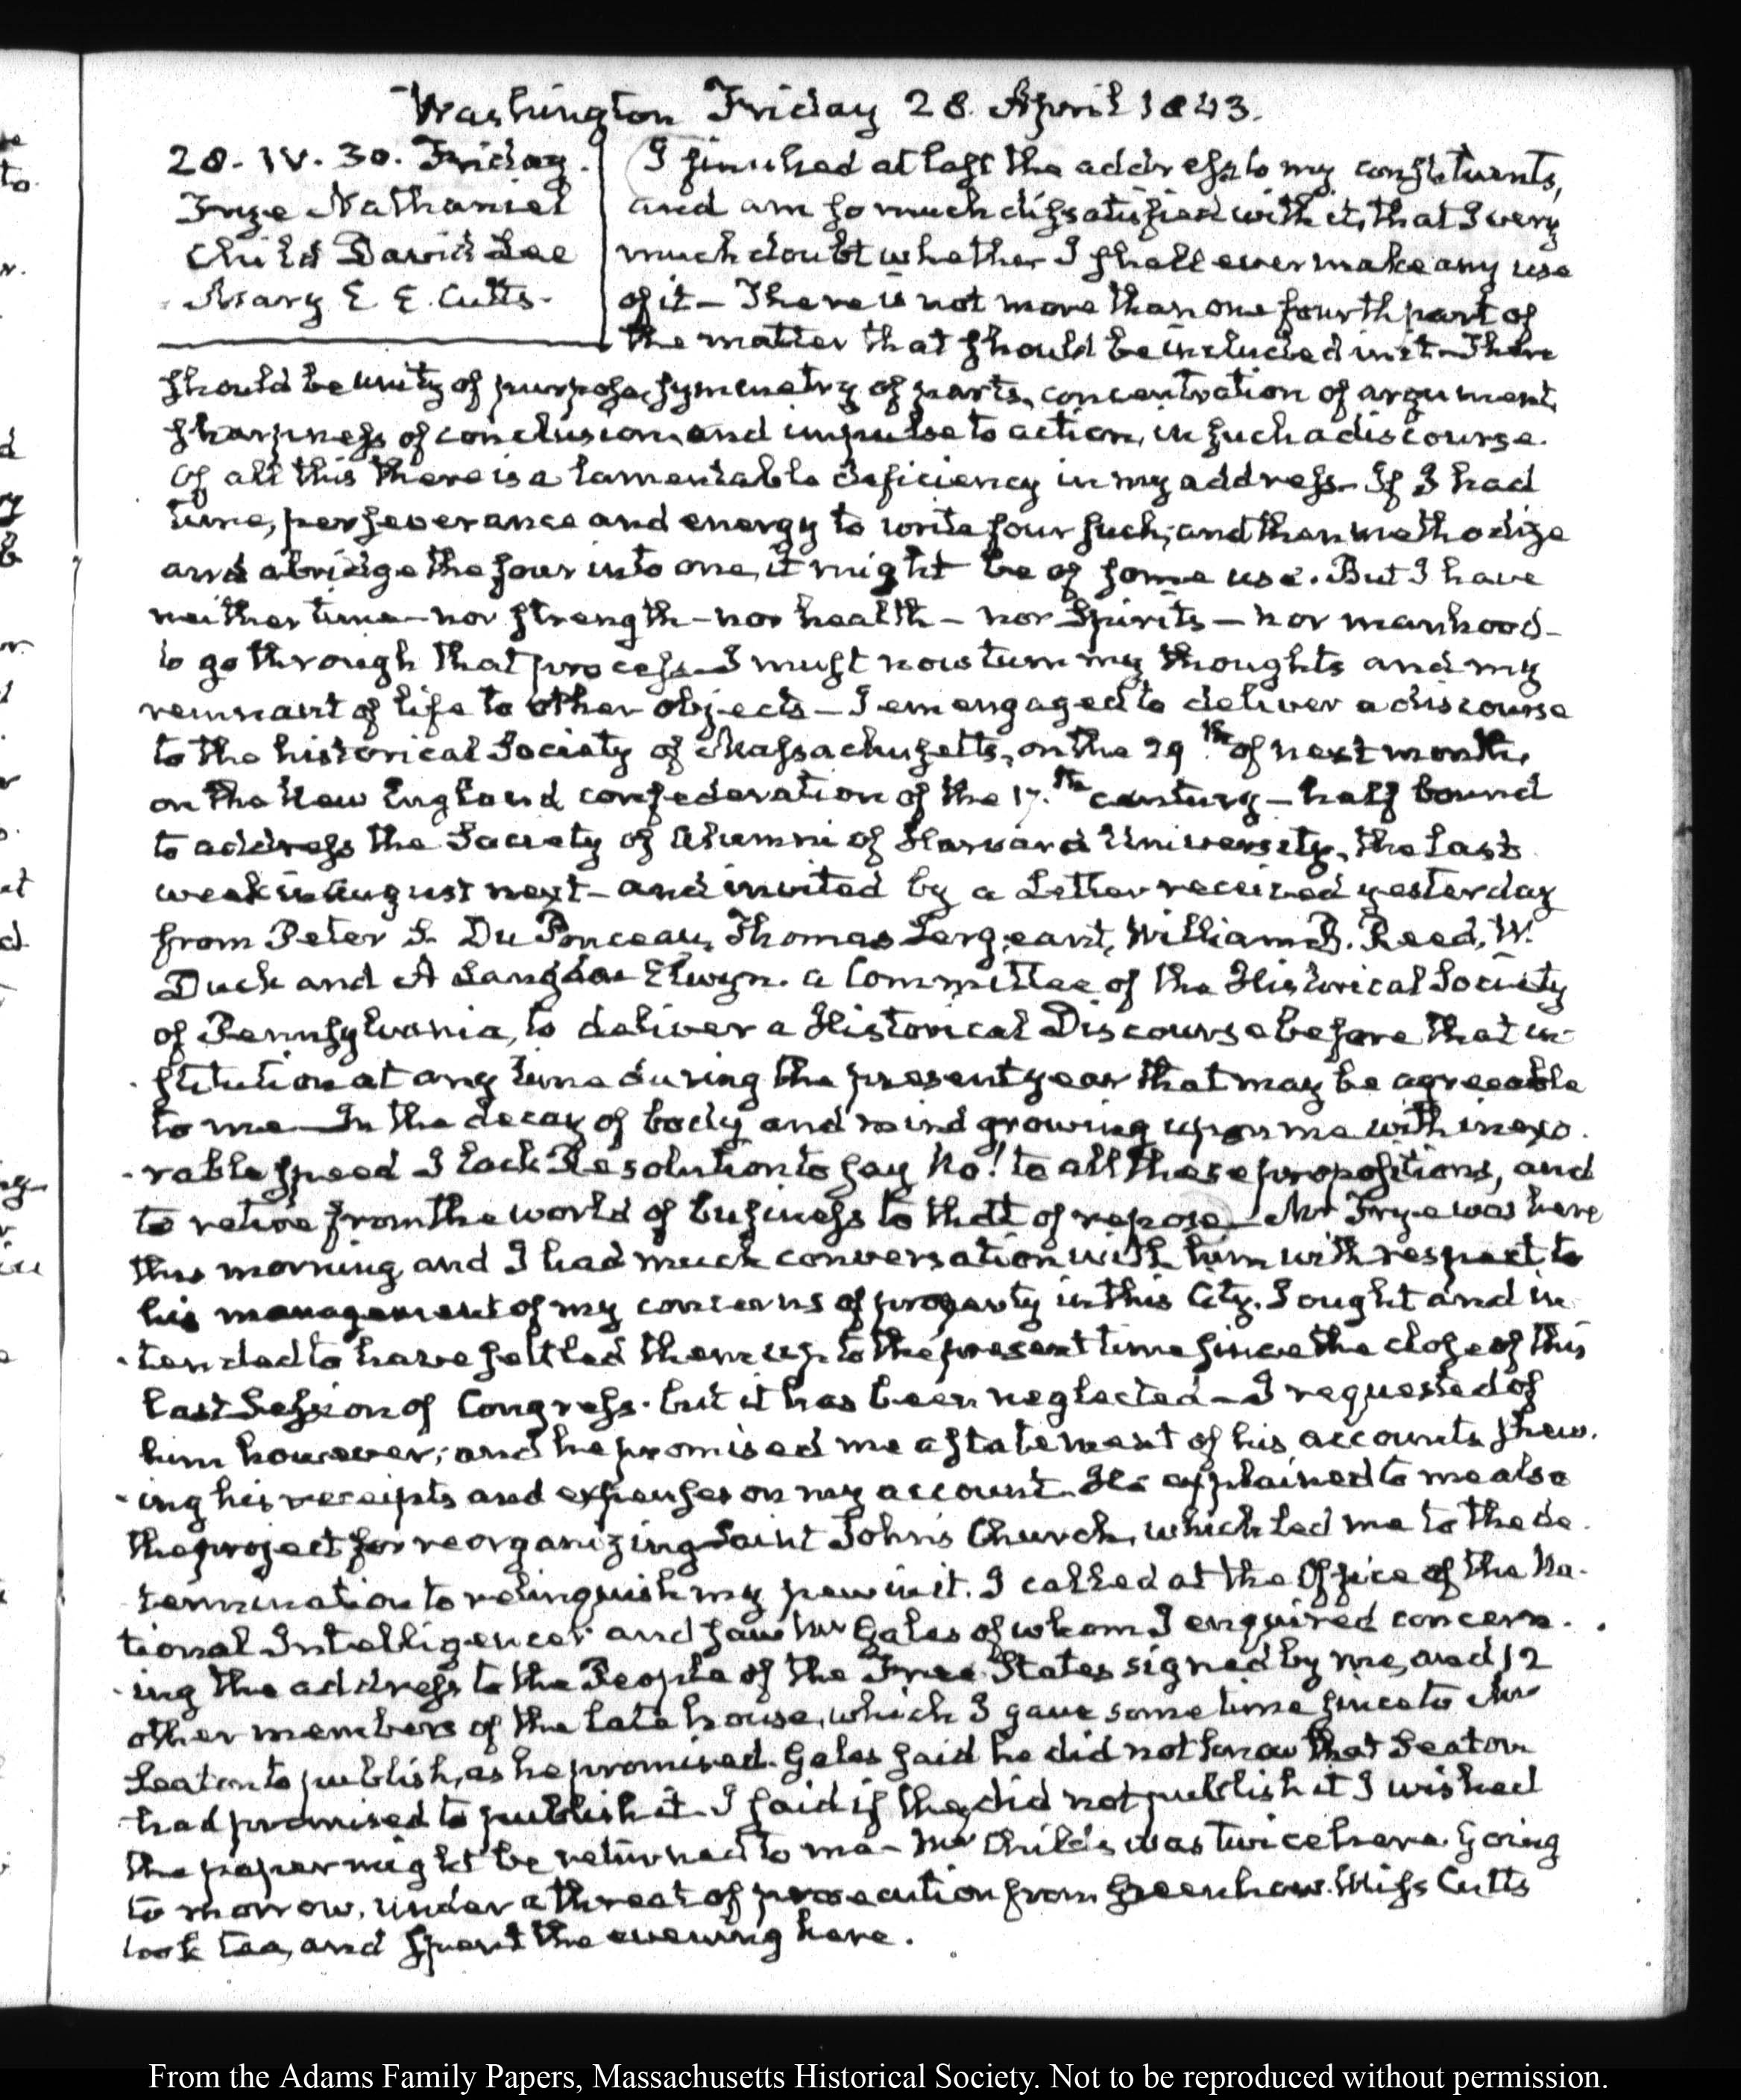 Washington Friday 28. April 1843.
28. IV. 30. Friday.
Frye Nathaniel
Child David Lee
Mary E E. Cutts.
I finished at last the address to my constituents,
and am so much dissatisfied with it, that I very
much doubt whether I shall ever make any use
of it — There is not more than one fourth part of
the matter that should be included in it — There
should be unity of purpose, symmetry of parts, concentration of argument,
sharpness of conclusion, and impulse to action, in such a discourse.
Of all this there is a lamentable deficiency in my address — If I had
time, perseverance and energy to write four such, and then methodize
and abridge the four into one, it might be of some use. But I have
neither time — nor strength — nor health — nor Spirits — nor manhood —
to go through that process — I must now turn my thoughts and my
remnant of life to other objects — I am engaged to deliver a discourse
to the historical Society of Massachusetts, on the 29th. of next month,
on the New England confederation of the 17.th century — half bound
to address the Society of Alumni of Harvard University, the last
week in August next — and invited by a Letter received yesterday
from Peter S. Du Ponceau, Thomas Sergeant, William B. Reed, W.
Duck and A Langdon Elwyn. a Committee of the Historical Society
of Pennsylvania, to deliver a Historical Discourse before that in-
-stitution at any time during the present year that may be agreeable
to me — In the decay of body and mind growing upon me with inexo-
-rable speed I lack Resolution to say No! to all these propositions, and
to retire from the world of business to that of repose — Mr Frye was here
this morning, and I had much conversation with him with respect to
his management of my concerns of property in this City. I ought and in-
-tended to have settled them up to the present time since the close of this
last Session of Congress. but it has been neglected — I requested of
him however; and he promised me a statement of his accounts shew-
-ing his receipts and expenses on my account. He explained to me also
the project for reorganizing Saint John's Church, which led me to the de-
termination to relinquish my pew in it. I called at the Office of the Na-
tional Intelligencer and saw Mr Gales of whom I enquired concern-
-ing the address to the People of the Free States signed by me, and 12
other members of the late house, which I gave some time since to Mr
Seaton to publish, as he promised. Gales said he did not know that Seaton
had promised to publish it — I said if they did not publish it I wished
the paper might be returned to me — Mr Childs was twice here. Going
to morrow, under a threat of prosecution from Greenhow. Miss Cutts
took tea, and spent the evening here.
From the Adams Family Papers, Massachusetts Historical Society. Not to be reproduced without permission.